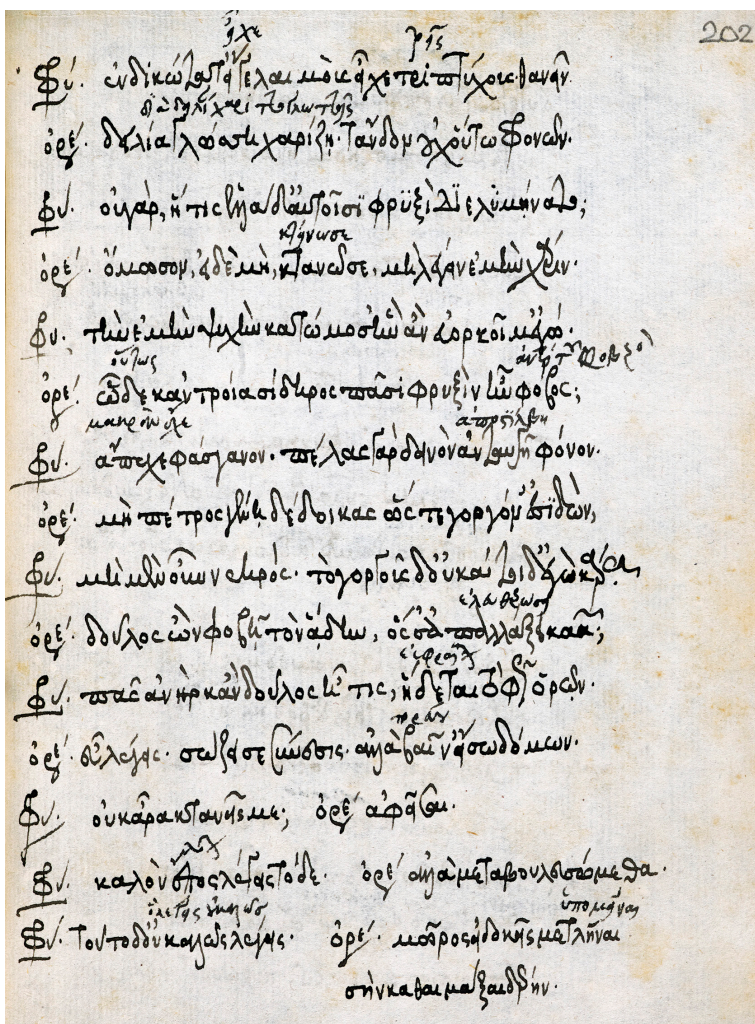 202
εἶχε
τρεῖς
Φρύ. ἐνδικώτατ' εἴγε λαιμοὺς εἶχε τριπτύχους θανεῖν.
ὀρέ. δειλία γλώσση χαρίζη· τἄνδον οὐχ οὕτω φρονῶν.
Φρύ. οὐ γὰρ, ἥτις ἑλλάδ' αὐτοῖσι φρυξὶ διελυμήνατο;
ὀρέ. ὄμοσον, εἰ δὲ μὴ, κτανῶ σε, μὴ λέγειν ἐμὴν χάριν.
Φρύ. τὴν ἐμὴν ψυχὴν κατώμοσ' ἣν ἂν εὐορκοῖμ' ἐγώ.
οὕτως
ὀρέ. ὧδε κἀν τροία σίδηρος πᾶσι φρυξὶν ἦν φόβος;
μακρὰν ἔχε
Φρύ. ἄπεχε φάσγανον. πέλας γὰρ δεινὸν ἀνταυγεῖ φόνον.
ὀρέ. μὴ πέτρος γένη δέδοικας ὥστε γοργόν' εἰσιδών;
Φρύ. μὴ μὲν οὖν νεκρός· τὸ γοργοῦς δ' οὐ κάτοιδ' ἐγὼ κάρα.
ὀρέ. δοῦλος ὢν φοβῆ τὸν ἅδην, ὅς σ' ἀπαλλάξει κακῶν;
Φρύ. πᾶς ἀνὴρ κἂν δοῦλος ἦ τις, ἥδεται τὸ φῶς ὁρῶν.
ὀρέ. εὖ λέγεις. σώζει σε σύνεσις. ἀλλὰ βαῖν' εἴσω δόμων.
Φρύ. οὐκ ἄρα κτανεῖς με; ὀρέ. ἀφεῖσαι.
Φρύ. καλὸν ἔπος λέγεις τόδε. ὀρέ. ἀλλὰ μεταβουλευσόμεθα.
ὑπομεῖναι
Φρύ. τοῦτο δ' οὐ καλῶς λέγεις. ὀρέ. μῶρος εἰ δοκεῖς με τλῆναι
σὴν καθαιμάξαι δέρην.